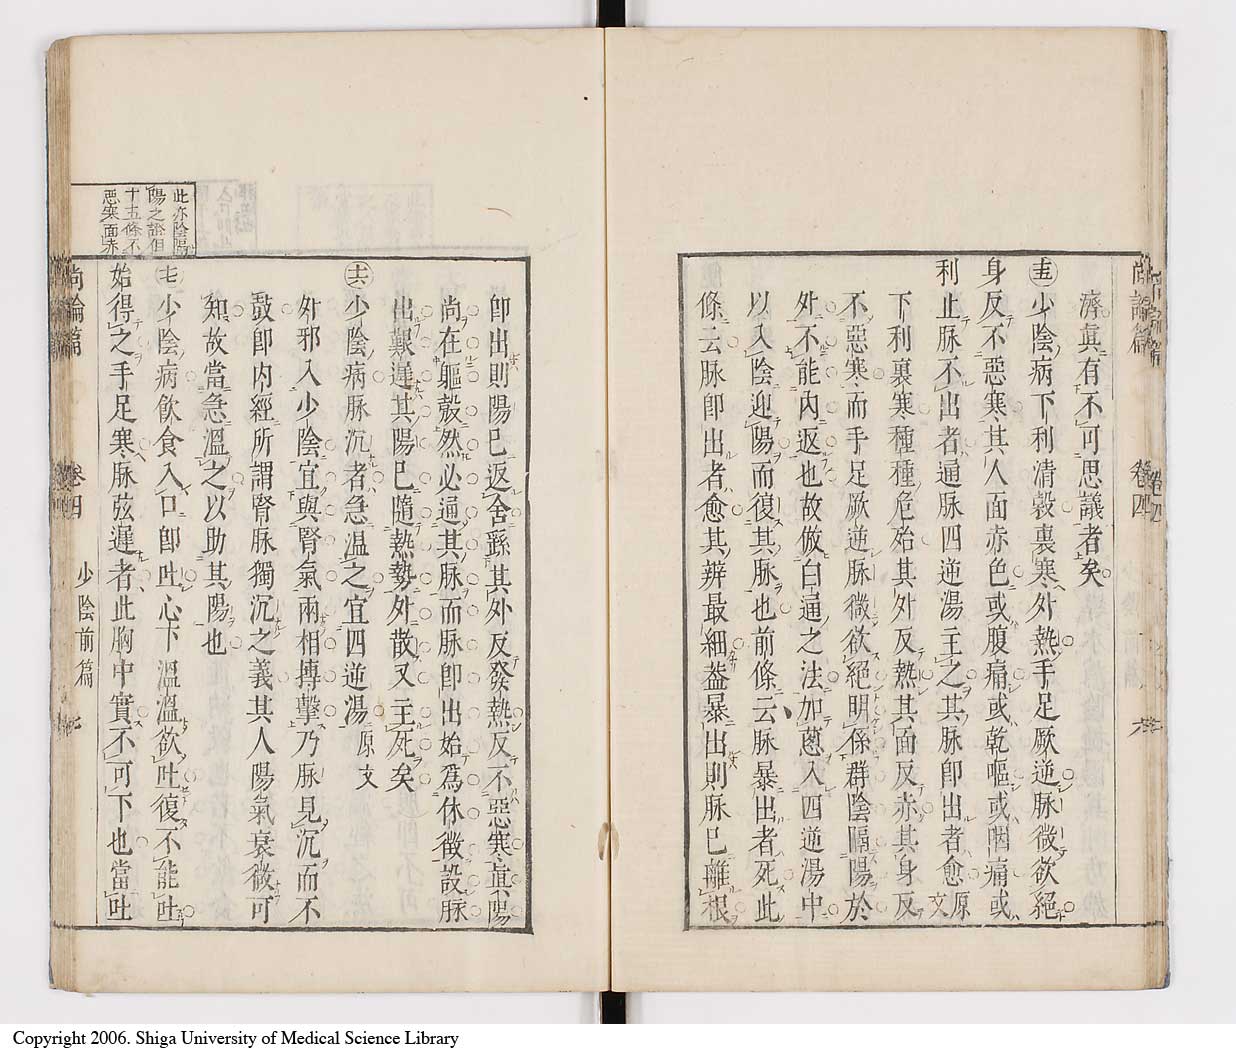 濟真有不可思議者矣
十五少陰病下利清穀裏寒外熱手足厥逆脉微欲絕
身反不惡寒其人面赤色或腹痛或乾嘔或咽痛或
利止脉不出者通脉四逆湯主之其脉即出者愈原文
下利裏寒種種危殆其外反熱其面反赤其身反
不惡寒而手足厥逆脉微欲絕明係群陰隔陽於
外不能內返也故倣白通之法加蔥入四逆湯中
以入陰迎陽而復其脉也前條云脉暴出者死此
條云脉即出者愈其辨最細葢暴出則脉已離根
即出則陽已返舍繇其外反發熱反不惡寒真陽
尚在軀殼然必通其脉而脉即出始爲休徵設脉
出艱遲其陽已隨熱勢外散又主死矣
十六少陰病脉沉者急温之宜四逆湯原文
外邪入少陰宜與腎氣兩相搏擊乃脉見沉而不
鼓即內經所謂腎脉獨沉之義其人陽氣衰微可
知故當急溫之以助其陽也
十七少陰病飲食入口即吐心下溫溫欲吐復不能吐
始得之手足寒脉弦遲者此胸中實不可下也當吐
此亦陰隔
陽之證但
十五條不
惡寒面赤
尚論篇 卷四 少陰前篇 七